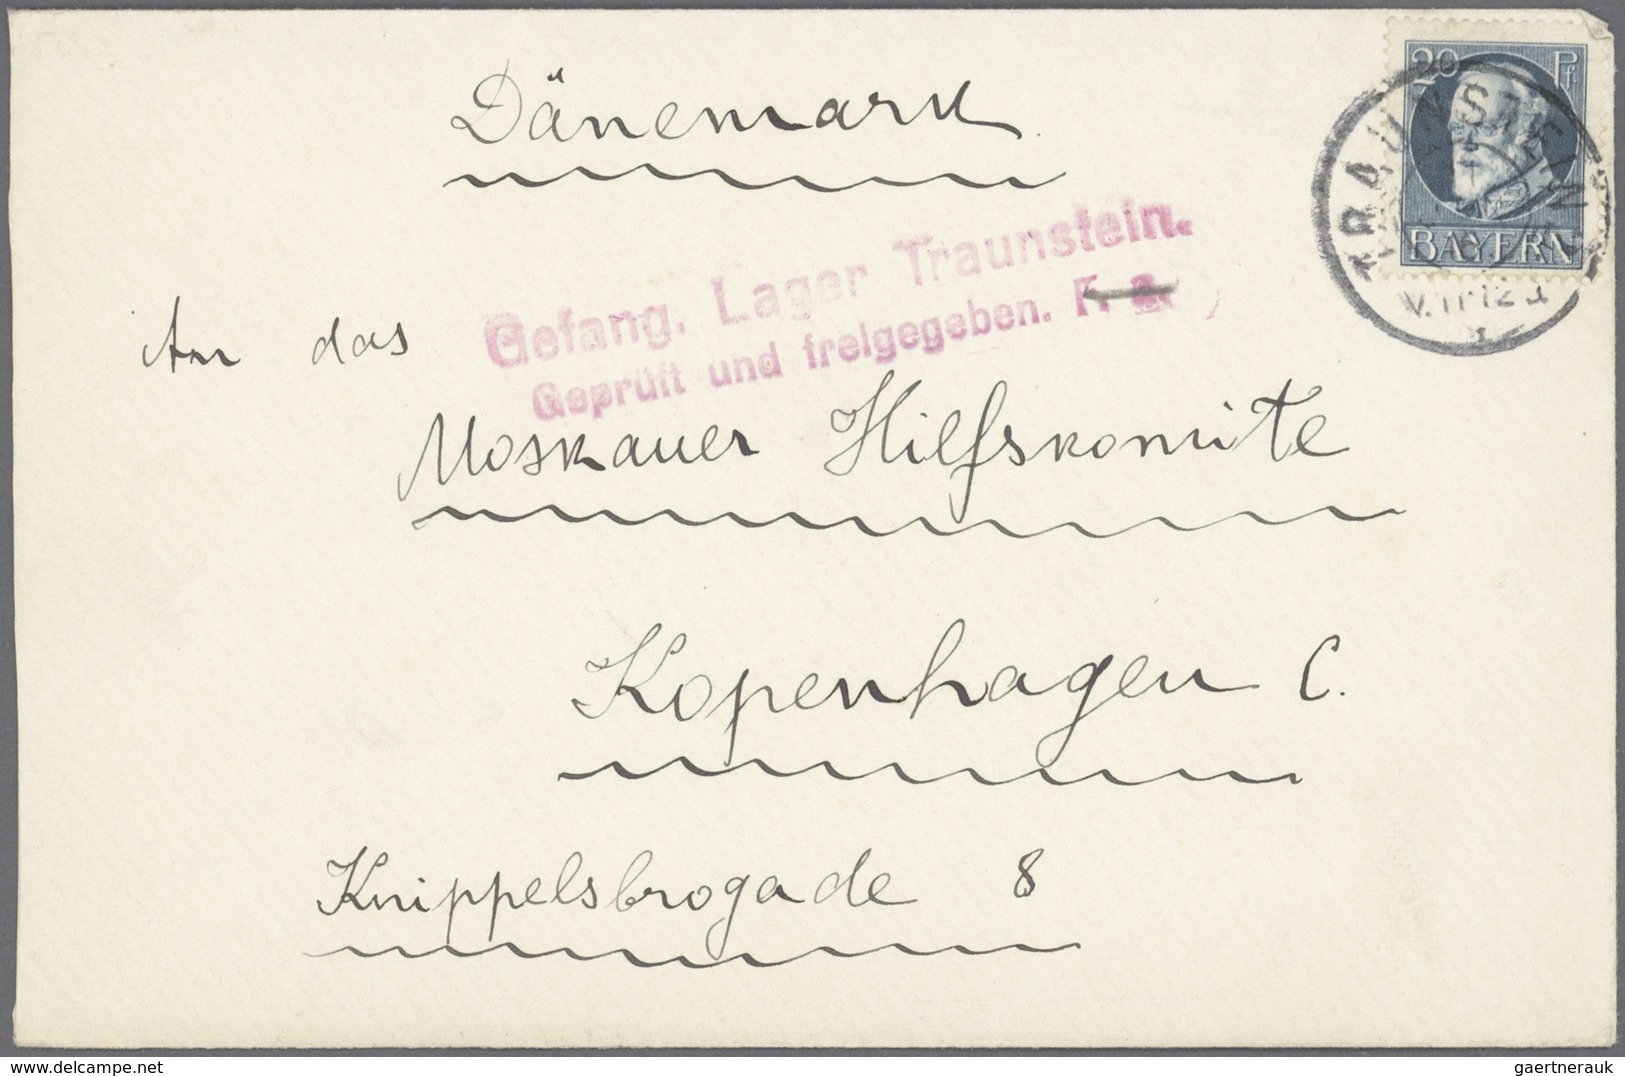 Dänemark
20 Pf
TRAUNSTEIN
BAYERN
Gefang. Lager Traunstein.
Geprüft und freigegeben. F. a.
An das
Moskauer Hilfskomite
Kopenhagen C.
Knippelsbrogade 8
www.delcampe.net
gaertnerauk